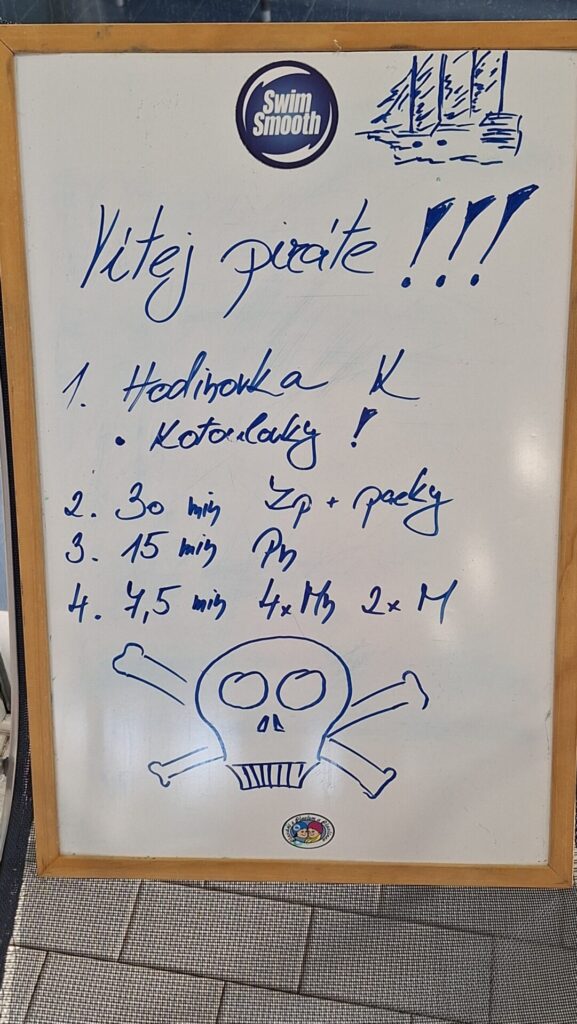 Swim
Smooth
Vítej piráte !!!
1. Hodinovka K
• Kotoulovky !
2. 30 min Zp + packy
3. 15 min Pn
4. 7,5 min 4x Mn 2x M